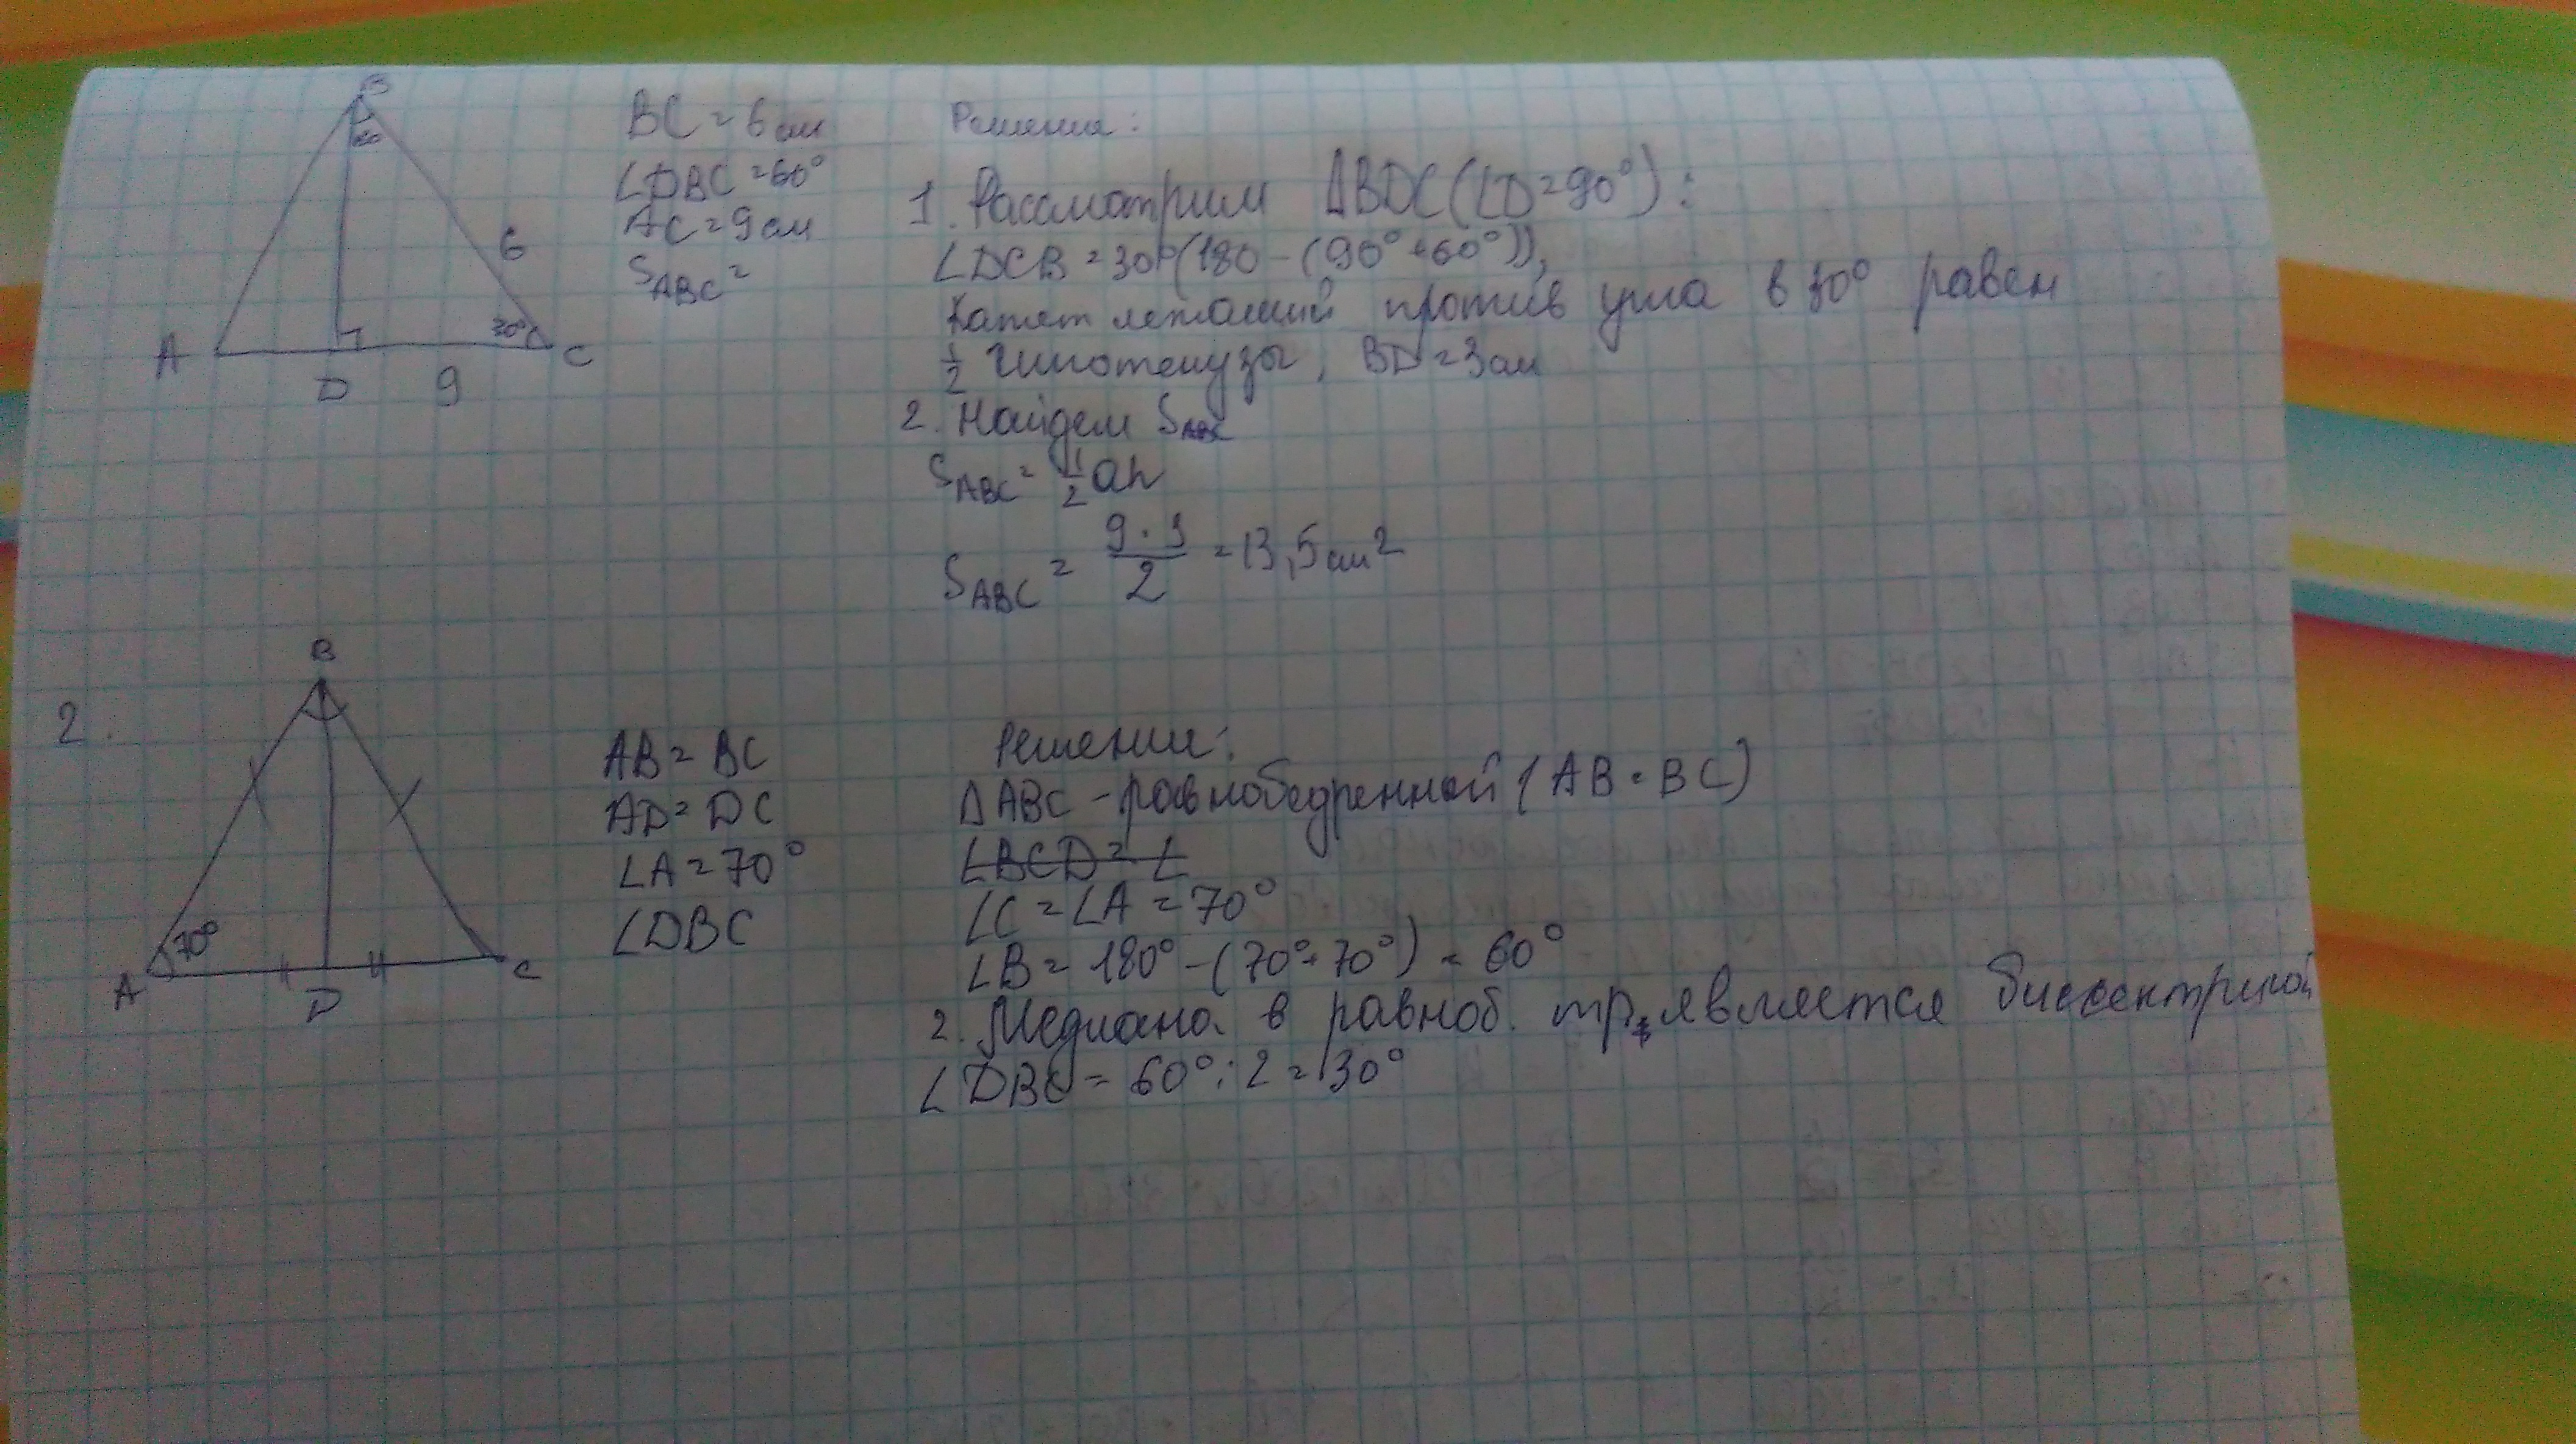 B
60
6
30°
A
D
9
C
BC = 6 см
∠DBC = 60°
AC = 9 см
S ABC =
Решение:
1. Рассмотрим ΔBDC (∠D = 90°):
∠DCB = 30° (180 - (90° + 60°)),
Катет лежащий против угла в 30° равен
1/2 гипотенузы, BD = 3 см
2. Найдем S ABC
S ABC = 1/2 ah
S ABC = 9 · 3 / 2 = 13,5 см²
2.
B
70°
A
D
C
AB = BC
AD = DC
∠A = 70°
∠DBC
Решение:
ΔABC - равнобедренный (AB = BC)
∠BCD = ∠
∠C = ∠A = 70°
∠B = 180° - (70° + 70°) = 60°
2. Медиана в равноб. тр. является биссектрисой
∠DBC = 60° : 2 = 30°